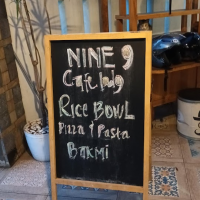 NINE 9
Cafe
RICE BOWL
Pizza & Pasta
BAKMI